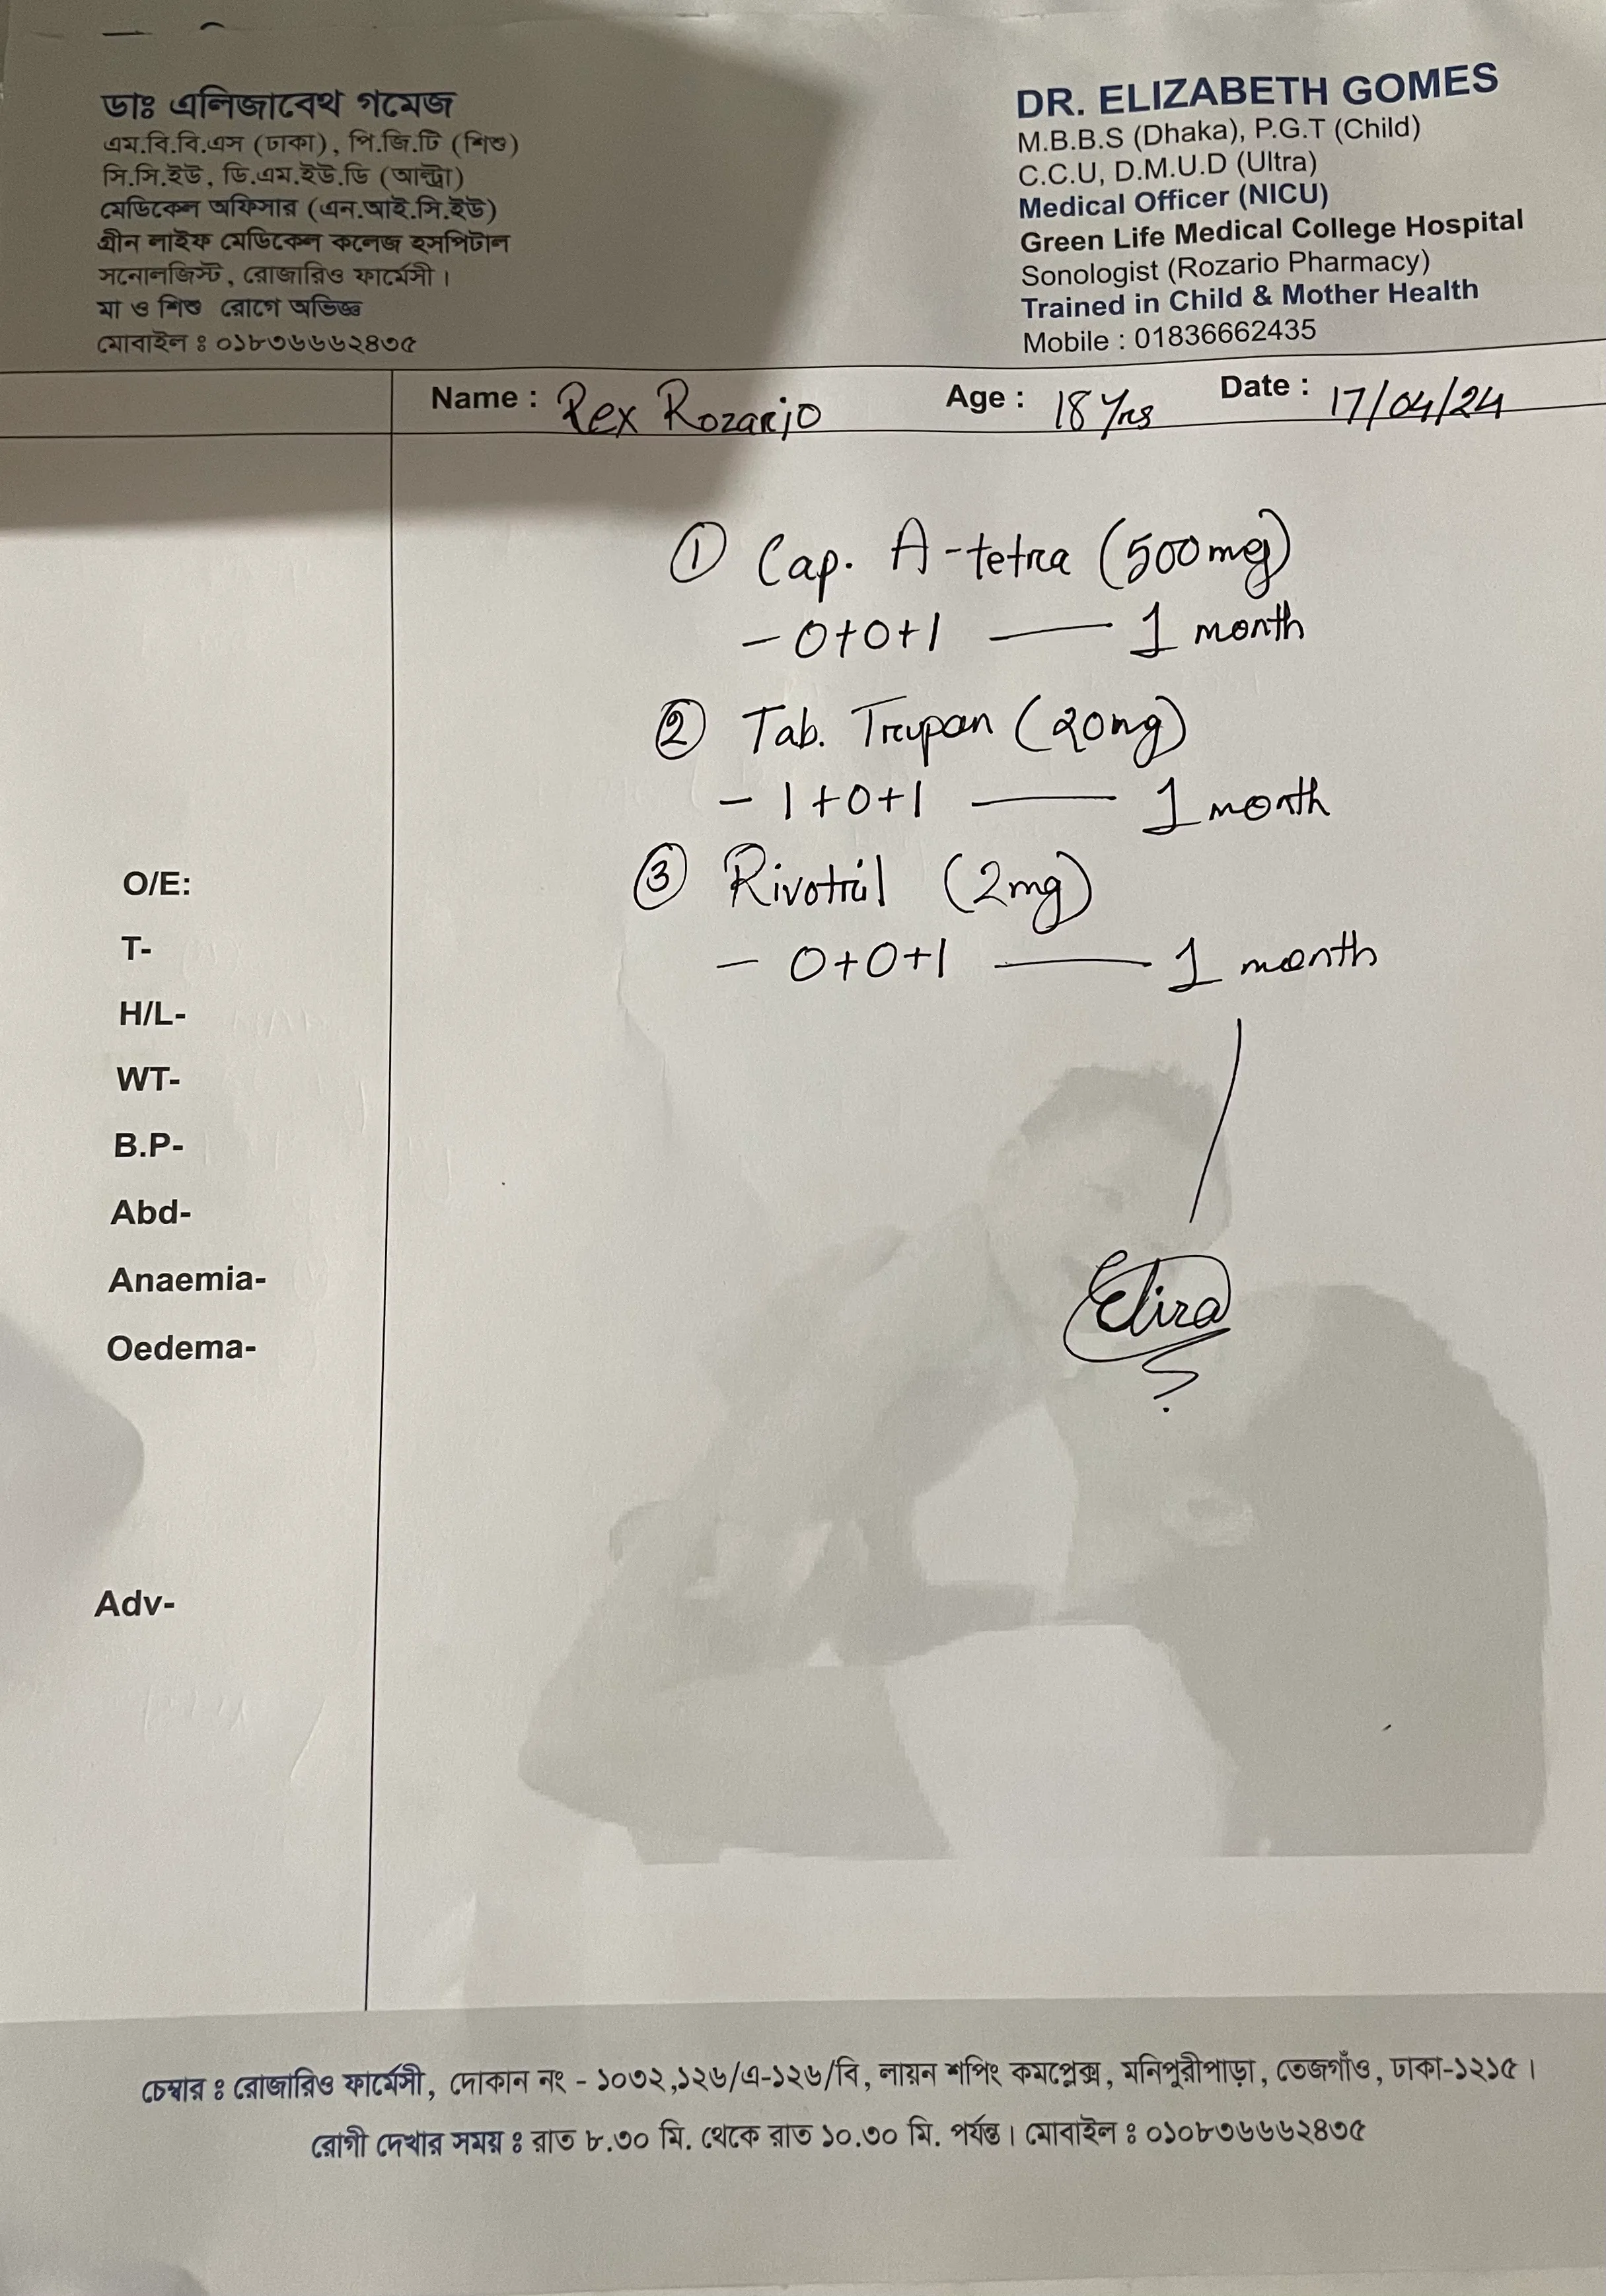 ডাঃ এলিজাবেথ গমেজ
এম.বি.বি.এস (ঢাকা), পি.জি.টি (শিশু)
সি.সি.ইউ, ডি.এম.ইউ.ডি (আল্ট্রা)
মেডিকেল অফিসার (এন.আই.সি.ইউ)
গ্রীন লাইফ মেডিকেল কলেজ হসপিটাল
সনোলজিস্ট, রোজারিও ফার্মেসী।
মা ও শিশু রোগে অভিজ্ঞ
মোবাইল ঃ ০১৮৩৬৬৬২৪৩৫
DR. ELIZABETH GOMES
M.B.B.S (Dhaka), P.G.T (Child)
C.C.U, D.M.U.D (Ultra)
Medical Officer (NICU)
Green Life Medical College Hospital
Sonologist (Rozario Pharmacy)
Trained in Child & Mother Health
Mobile : 01836662435
Name : Rex Rozario Age : 18 Yrs Date : 17/04/24
① Cap. A-tetra (500mg)
- 0+0+1 — 1 month
② Tab. (20mg)
- 1+0+1 — 1 month
③ Rivotril (2mg)
- 0+0+1 — 1 month
O/E:
T-
H/L-
WT-
B.P-
Abd-
Anaemia-
Oedema-
Adv-
চেম্বার ঃ রোজারিও ফার্মেসী, দোকান নং - ১০৩২,১২৬/এ-১২৬/বি, লায়ন শপিং কমপ্লেক্স, মনিপুরীপাড়া, তেজগাঁও, ঢাকা-১২১৫।
রোগী দেখার সময় ঃ রাত ৮.৩০ মি. থেকে রাত ১০.৩০ মি. পর্যন্ত। মোবাইল ঃ ০১০৮৩৬৬৬২৪৩৫